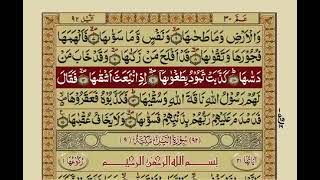 عمّ ٣٠ الّیل ٩٢
وَالْاَرْضِ وَمَا طَحٰىهَا ۞ وَنَفْسٍ وَّمَا سَوّٰىهَا ۞ فَاَلْهَمَهَا
فُجُوْرَهَا وَتَقْوٰىهَا ۞ قَدْ اَفْلَحَ مَنْ زَكّٰىهَا ۞ وَقَدْ خَابَ مَنْ
دَسّٰىهَا ۞ كَذَّبَتْ ثَمُوْدُ بِطَغْوٰىهَا ۞ اِذِ انْۢبَعَثَ اَشْقٰىهَا ۞ فَقَالَ
لَهُمْ رَسُوْلُ اللّٰهِ نَاقَةَ اللّٰهِ وَسُقْيٰهَا ۞ فَكَذَّبُوْهُ فَعَقَرُوْهَا ۞
فَدَمْدَمَ عَلَيْهِمْ رَبُّهُمْ بِذَنْۢبِهِمْ فَسَوّٰىهَا ۞ وَلَا يَخَافُ عُقْبٰهَا ۞
(٩٢) سُوْرَةُ الَّيْلِ مَكِّيَّةٌ (٩)
اٰیاتها ٢١ بِسْمِ اللهِ الرَّحْمٰنِ الرَّحِيْمِ رکوعها ١